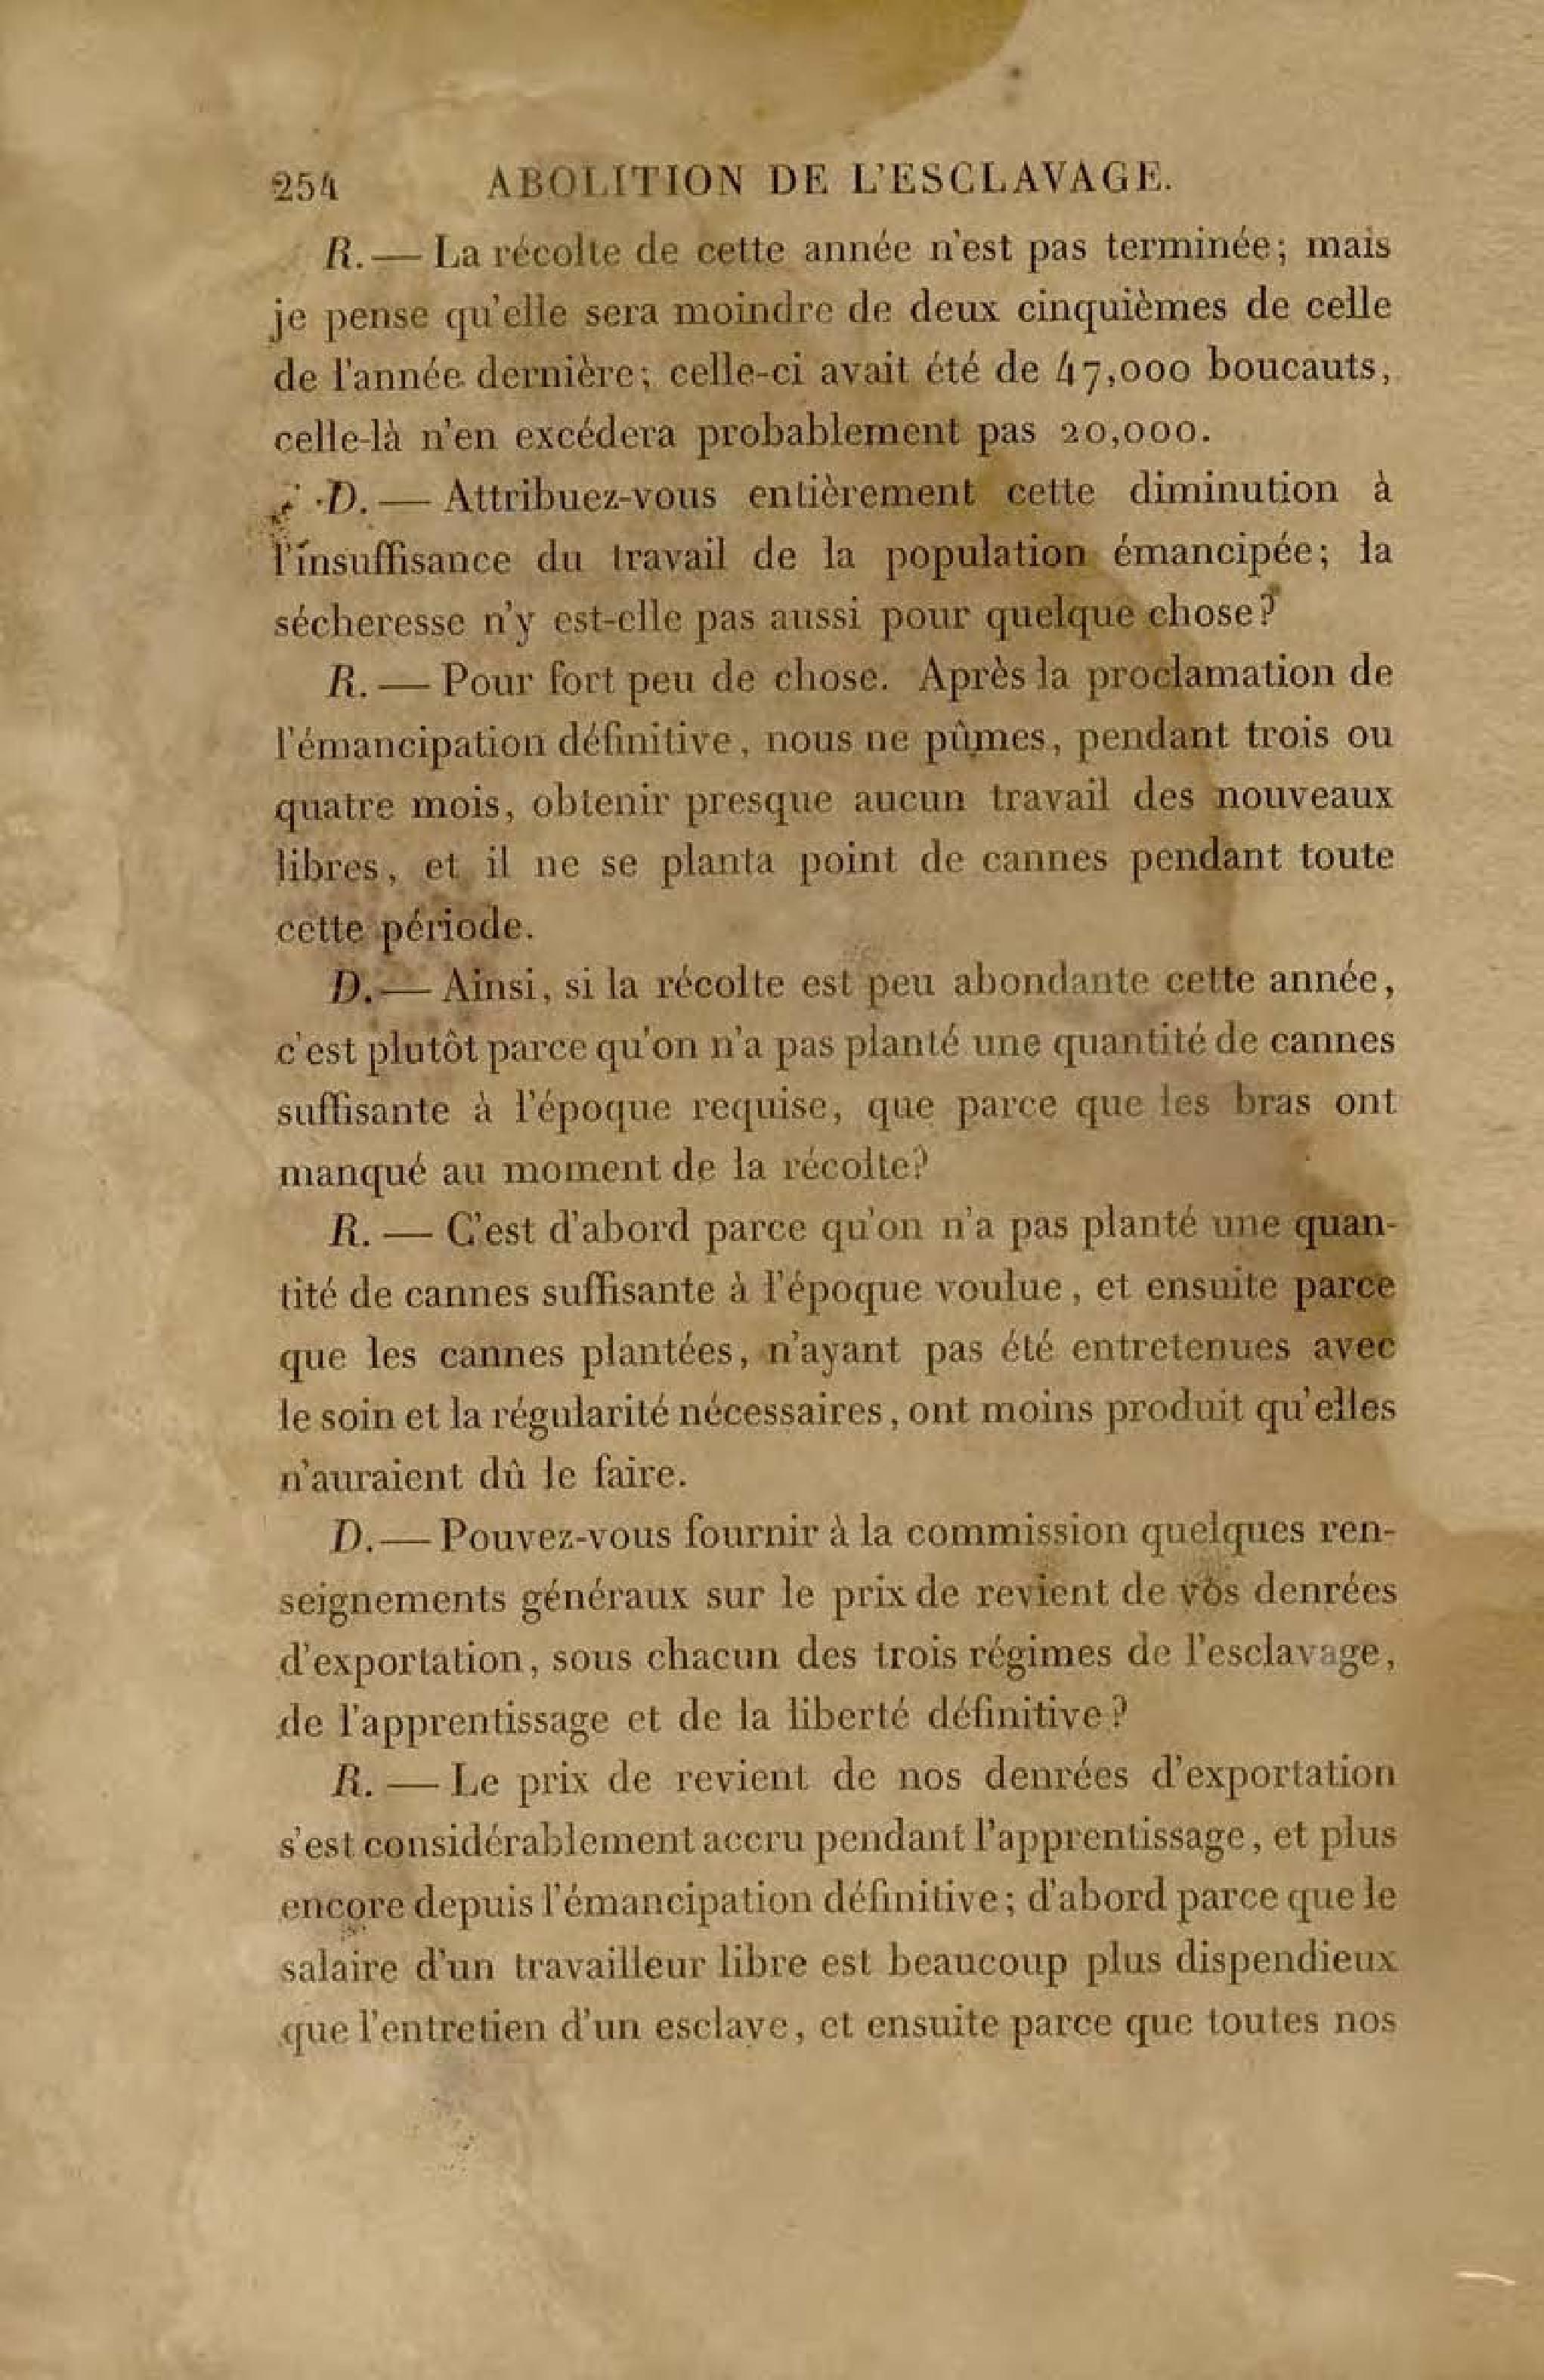 254 ABOLITION DE L'ESCLAVAGE.
R. — La récolte de cette année n'est pas terminée; mais
je pense qu'elle sera moindre de deux cinquièmes de celle
de l'année dernière; celle-ci avait été de 47,000 boucauts,
celle-là n'en excédera probablement pas 20,000.
D. — Attribuez-vous entièrement cette diminution à
l'insuffisance du travail de la population émancipée; la
sécheresse n'y est-elle pas aussi pour quelque chose?
R. — Pour fort peu de chose. Après la proclamation de
l'émancipation définitive, nous ne pûmes, pendant trois ou
quatre mois, obtenir presque aucun travail des nouveaux
libres, et il ne se planta point de cannes pendant toute
cette période.
D. — Ainsi, si la récolte est peu abondante cette année,
c'est plutôt parce qu'on n'a pas planté une quantité de cannes
suffisante à l'époque requise, que parce que les bras ont
manqué au moment de la récolte?
R. — C'est d'abord parce qu'on n'a pas planté une quan-
tité de cannes suffisante à l'époque voulue, et ensuite parce
que les cannes plantées, n'ayant pas été entretenues avec
le soin et la régularité nécessaires, ont moins produit qu'elles
n'auraient dû le faire.
D. — Pouvez-vous fournir à la commission quelques ren-
seignements généraux sur le prix de revient de vos denrées
d'exportation, sous chacun des trois régimes de l'esclavage,
de l'apprentissage et de la liberté définitive?
R. — Le prix de revient de nos denrées d'exportation
s'est considérablement accru pendant l'apprentissage, et plus
encore depuis l'émancipation définitive; d'abord parce que le
salaire d'un travailleur libre est beaucoup plus dispendieux
que l'entretien d'un esclave, et ensuite parce que toutes nos